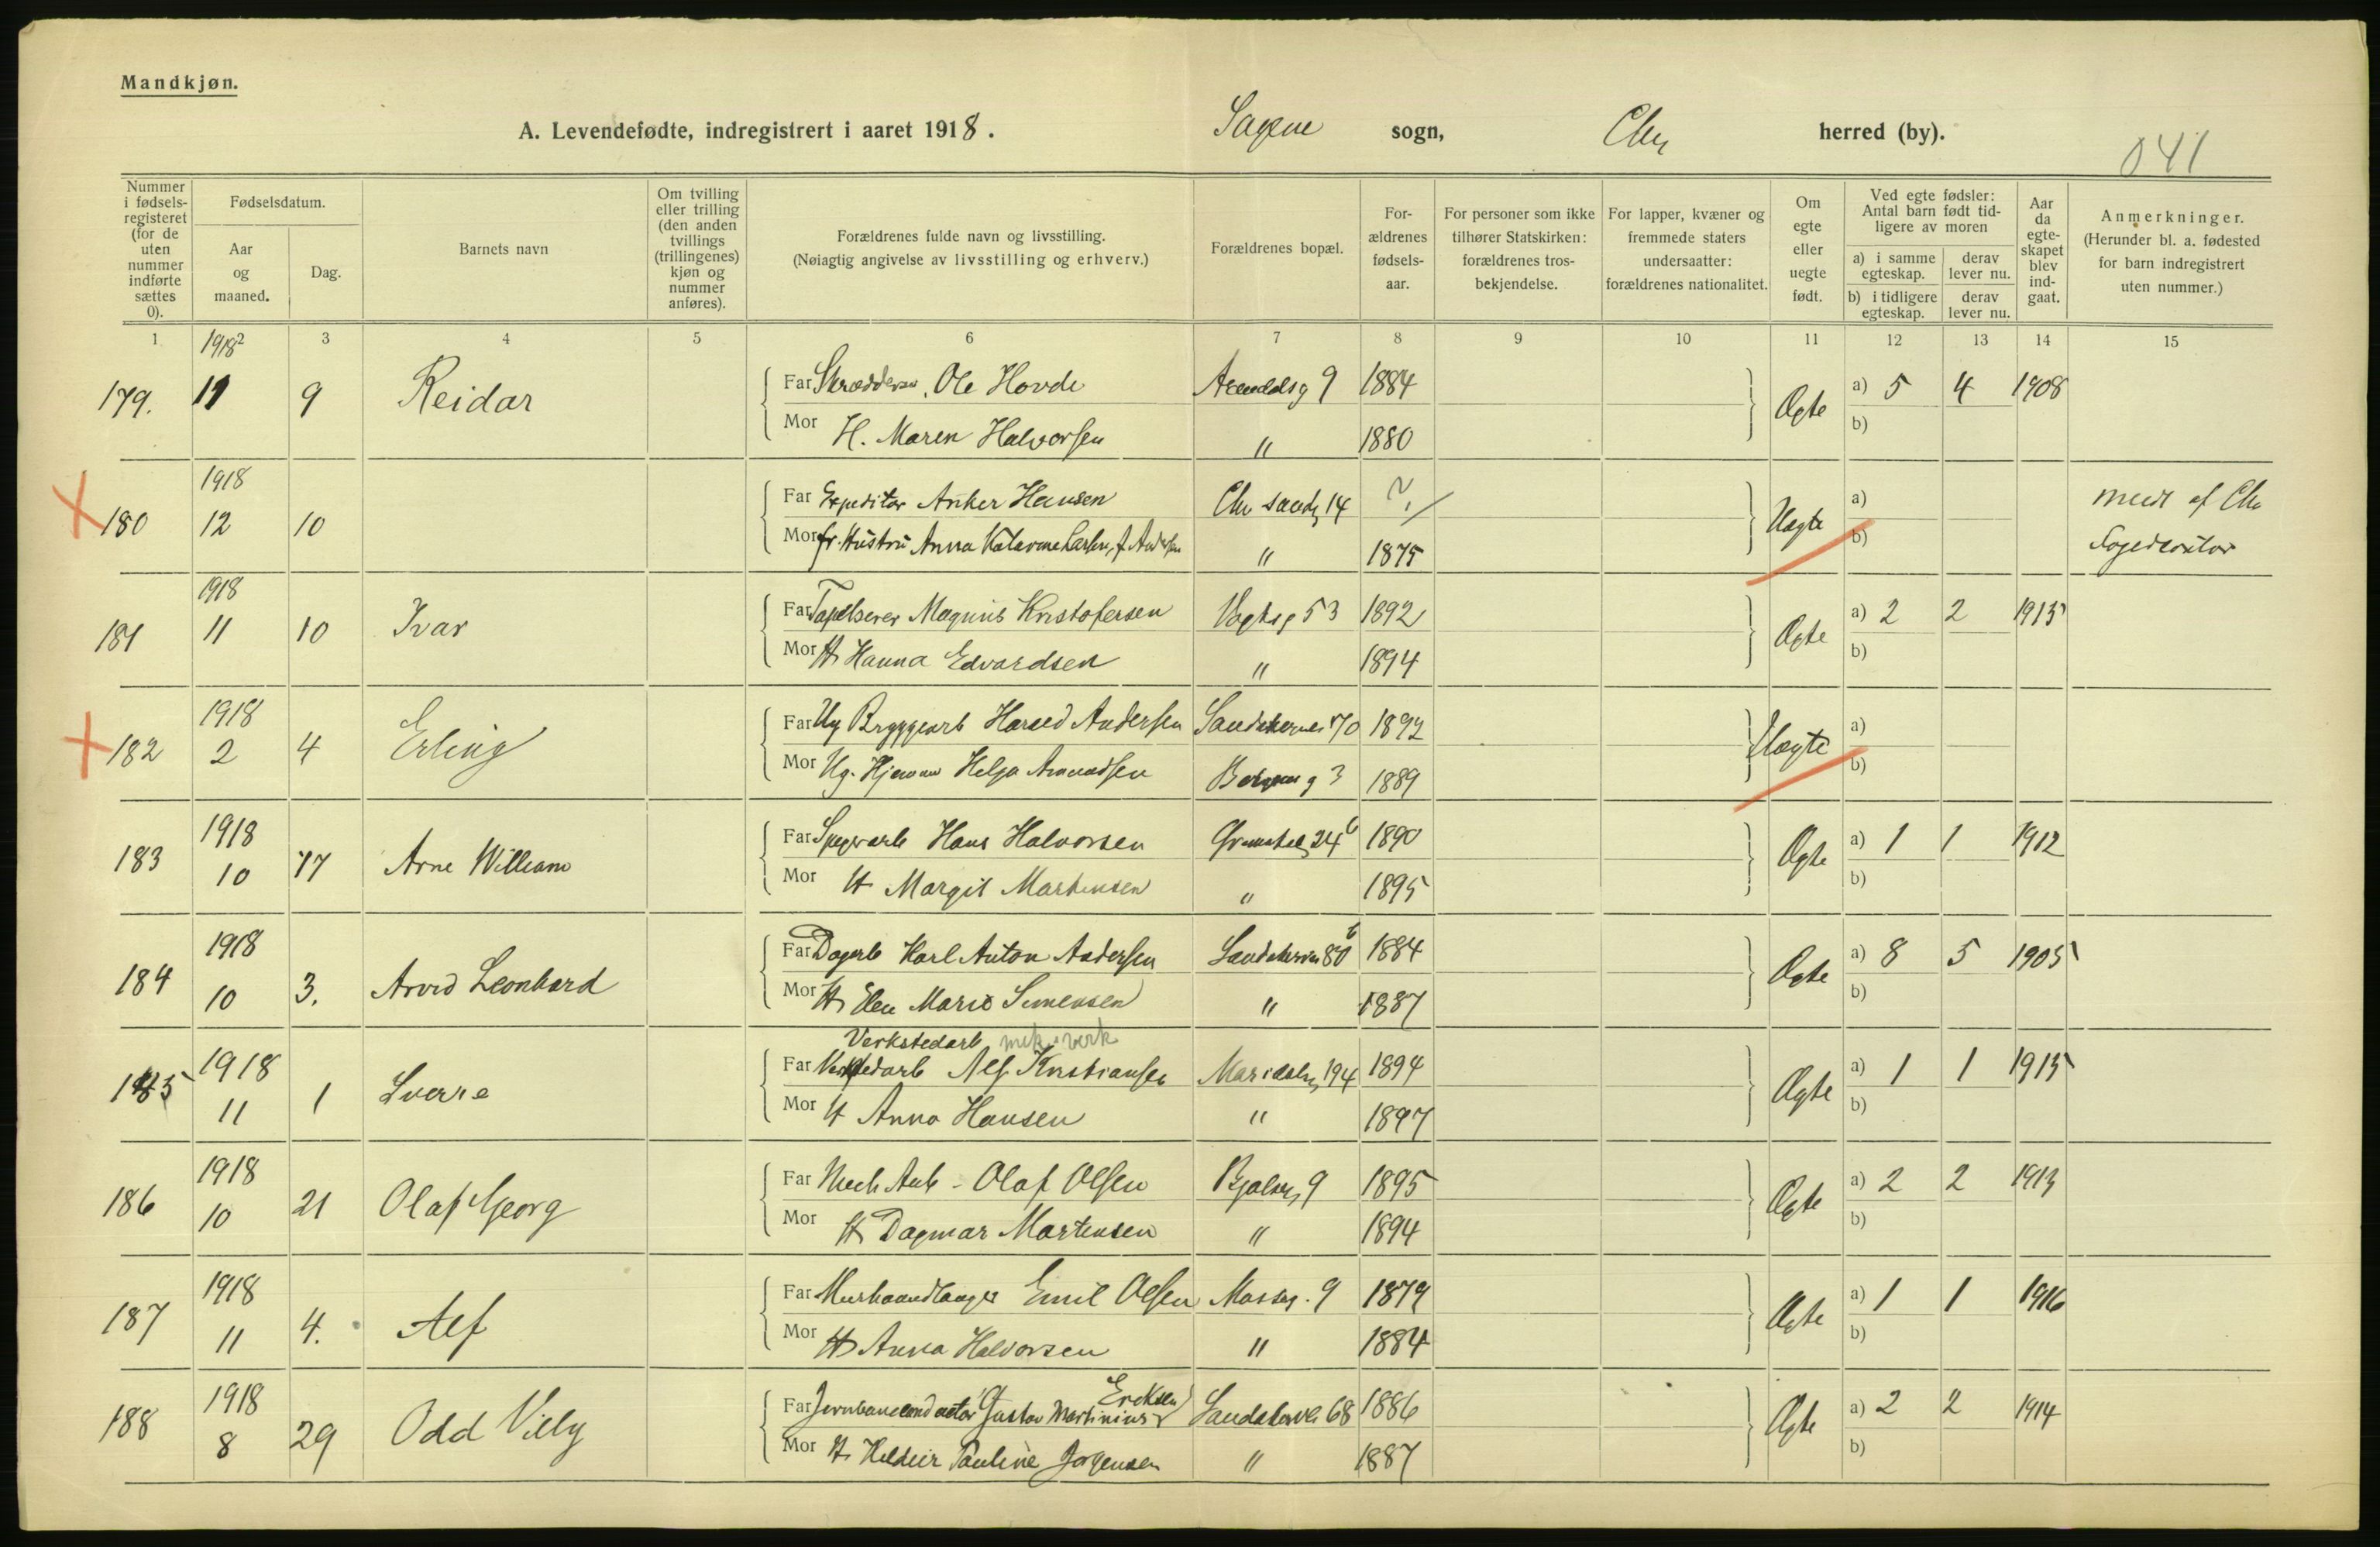 Mandkjøn.
A. Levendefødte, indregistrert i aaret 1918. Sagene sogn, Chr herred (by).
041
Nummer i fødselsregisteret (for de uten nummer indførte sættes 0).
Fødselsdatum.
Aar og maaned.
Dag.
Barnets navn
Om tvilling eller trilling (den anden tvillings (trillingenes) kjøn og nummer anføres).
Forældrenes fulde navn og livsstilling.
(Nøiagtig angivelse av livsstilling og erhverv.)
Forældrenes bopæl.
Forældrenes fødselsaar.
For personer som ikke tilhører Statskirken: forældrenes trosbekjendelse.
For lapper, kvæner og fremmede staters undersaatter: forældrenes nationalitet.
Om egte eller uegte født.
Ved egte fødsler: Antal barn født tidligere av moren
a) i samme egteskap.
derav lever nu.
b) i tidligere egteskap.
derav lever nu.
Aar da egteskapet blev indgaat.
Anmerkninger.
(Herunder bl. a. fødested for barn indregistrert uten nummer.)
1 2 3 4 5 6 7 8 9 10 11 12 13 14 15
179. 1918 11 9 Reidar Far Ole Hovde 9 1884 Ægte a) 5 4 1908
Mor H. Maren Halvorsen " 1880 b)
180 1918 12 10 Far Expeditør Anker Hansen Chr sandg 14 ? Uægte a) meds af Chr
Mor fr. Hustru Anna Larsen, f. Andersen " 1875 b)
181 1918 11 10 Ivar Far Magnus Kristofersen Vogtsg 53 1892 Ægte a) 2 2 1915
Mor H Hanna Edvardsen " 1894 b)
182 1918 2 4 Erling Far Ug Bryggearb Harald Andersen Sandakerveien 70 1892 Uægte a)
Mor Ug. Helga Amundsen Bergensg 3 1889 b)
183 1918 10 17 Arne William Far Hans Halvorsen 24 b 1890 Ægte a) 1 1 1912
Mor H Margit Martinsen " 1895 b)
184 1918 10 3. Arvid Leonhard Far Dagarb Karl Anton Andersen Sandakerveien 80 b 1884 Ægte a) 8 5 1905
Mor H Elen Marie Simensen " 1887 b)
Verkstedarb mek. verk
185 1918 11 1 Sverre Far Verkstedarb Alf Kristiansen Maridalsv 194 1894 Ægte a) 1 1 1915
Mor H Anna Hansen " 1897 b)
186 1918 10 21 Olaf Georg Far Mech Arb - Olaf Olsen Bjølsg 9 1895 Ægte a) 2 2 1913
Mor H Dagmar Martensen " 1894 b)
187 1918 11 4. Alf Far Murhaandlanger Emil Olsen Mosseg. 9 1879 Ægte a) 1 1 1916
Mor H Anna Halvorsen " 1884 b)
188 1918 8 29 Odd Villy Far Jernbaneconductør Gustav Martinius Eriksen Sandakervei 68 1886 Ægte a) 2 2 1914
Mor H Pauline Jørgensen " 1887 b)